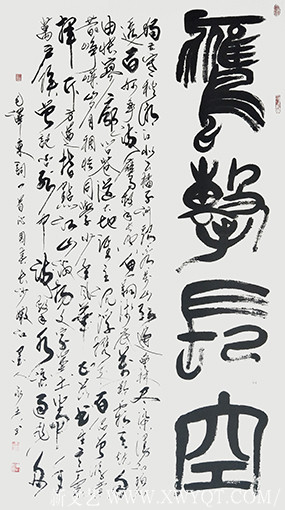 鷹擊長空
独立寒秋湘江北去橘子洲头看万山红遍层林尽染漫江碧
透百舸争流鹰击长空鱼翔浅底万类霜天竞自
由怅寥廓问苍茫大地谁主沉浮携来百侣曾游忆往
昔峥嵘岁月稠恰同学少年风华正茂书生意气
挥斥方遒指点江山激扬文字粪土当年
万户侯曾记否到中流击水浪遏飞舟
毛泽东词一首沁园春长沙
WWW.XWYQT.COM/